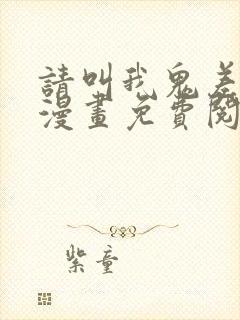 請叫我鬼差
漫畫免費閱
紫童